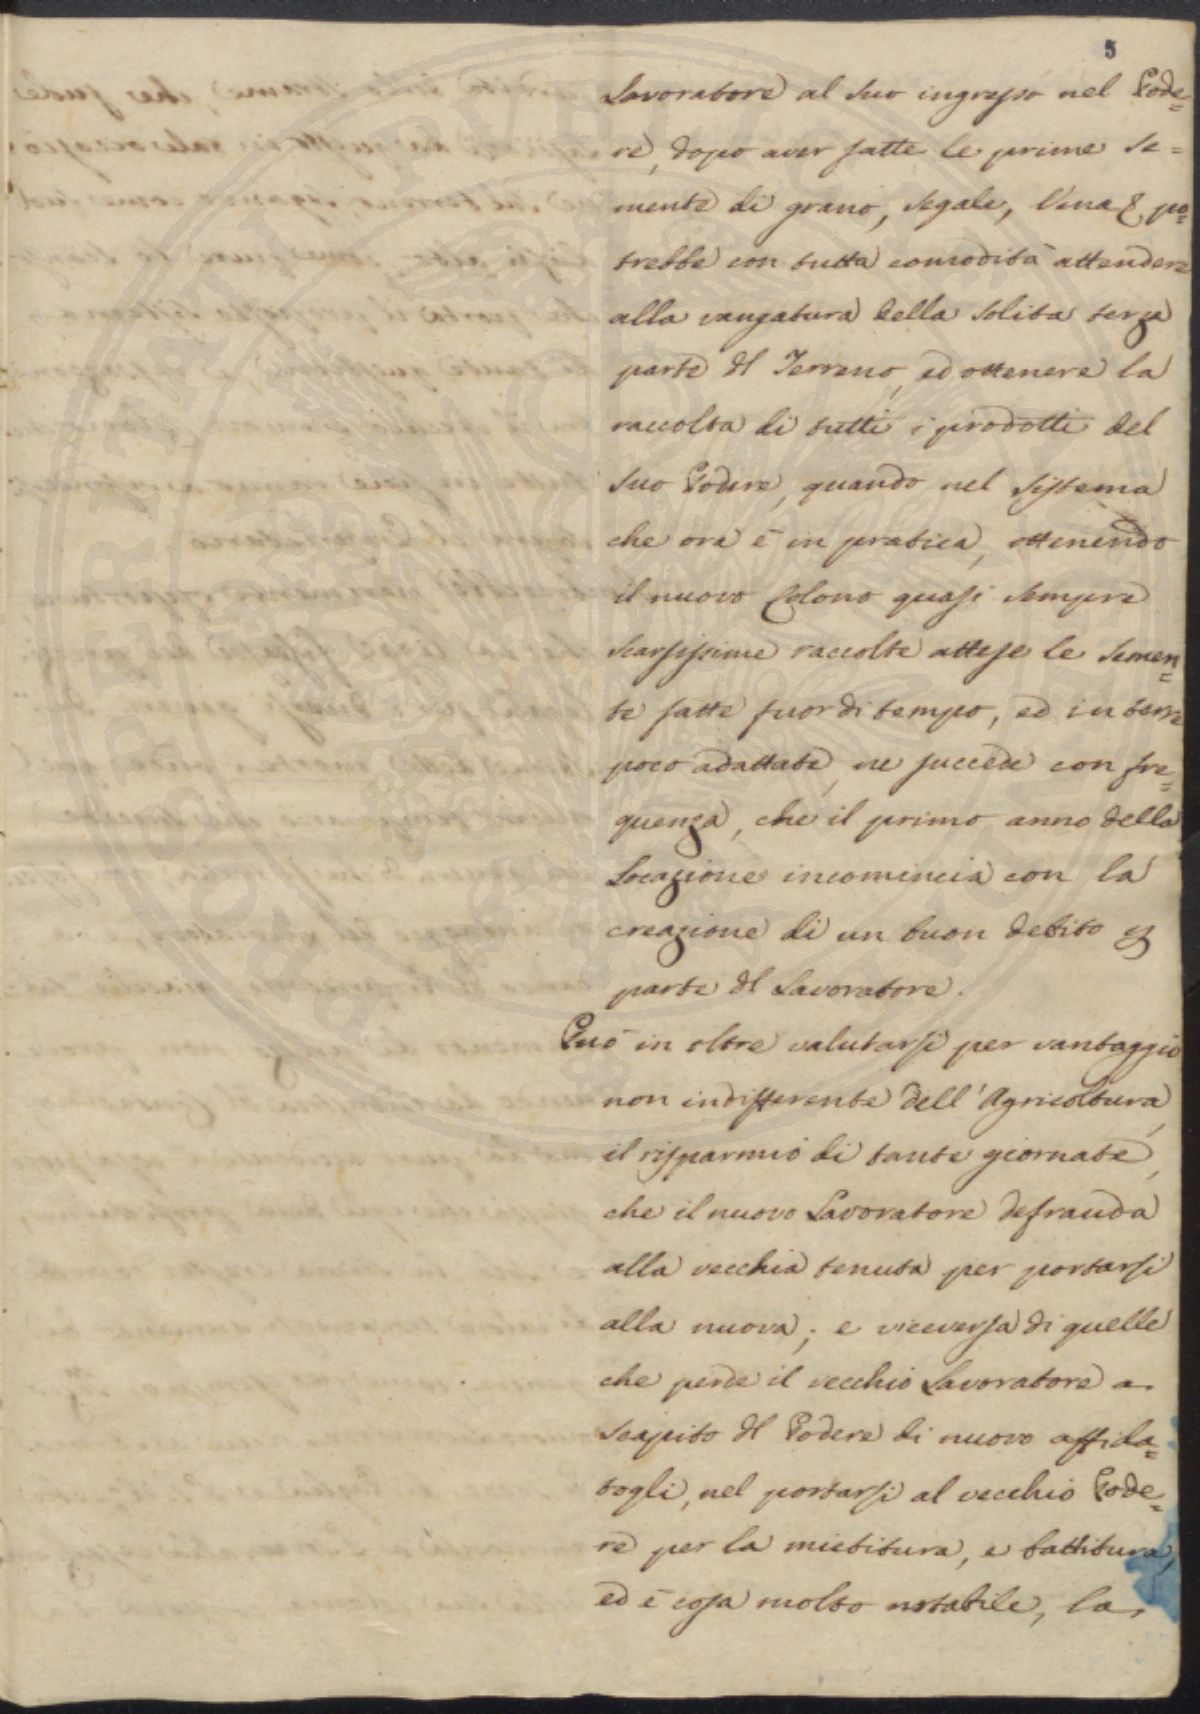 5
Lavoratore al suo ingresso nel Pode=
re, dopo aver fatte le prime se=
mente di grano, segale, Vena & po=
trebbe con tutta comodità attendere
alla vangatura della solita terza
parte dl Terreno, ed ottenere la
raccolta di tutti i prodotti del
suo Podere, quando nel sistema
che ora è in pratica, ottenendo
il nuovo Colono quasi sempre
scarsissime raccolte attese le semen=
te fatte fuor di tempo, ed in terre
poco adattate, ne succede con fre=
quenza, che il primo anno della
Locazione incomincia con la
creazione di un buon debito
parte dl Lavoratore.
Può in oltre valutarsi per vantaggio
non indifferente dell'Agricoltura,
il risparmio di tante giornate,
che il nuovo Lavoratore defrauda
alla vecchia tenuta per portarsi
alla nuova; e viceversa di quelle
che perde il vecchio Lavoratore a
scapito dl Podere di nuovo affida=
togli, nel portarsi al vecchio Pode=
re per la mietitura, e battitura,
ed è cosa molto notabile, la